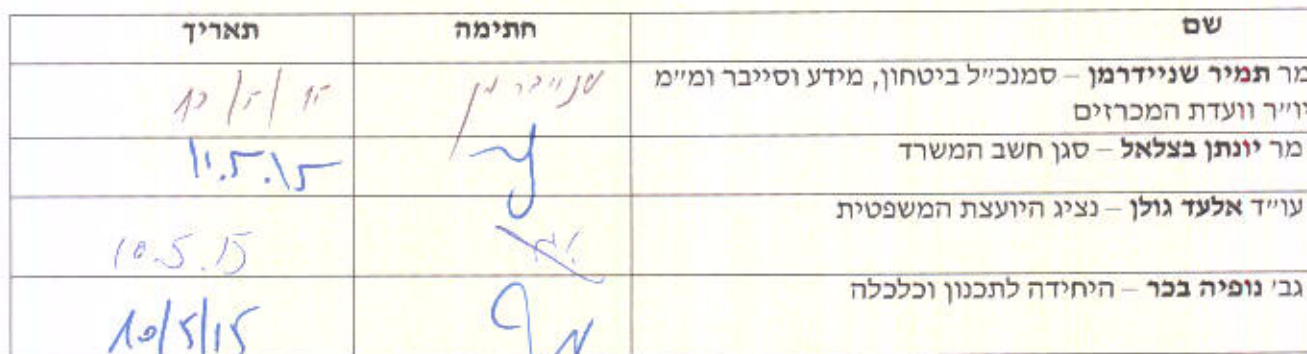 שם חתימה תאריך
מר תמיר שניידרמן – סמנכ״ל ביטחון, מידע וסייבר ומ״מ שניידרמן
יו״ר וועדת המכרזים
מר יונתן בצלאל – סגן חשב המשרד 11.5.15
עו״ד אלעד גולן – נציג היועצת המשפטית 10.5.15
גב׳ נופיה בכר – היחידה לתכנון וכלכלה 10/5/15